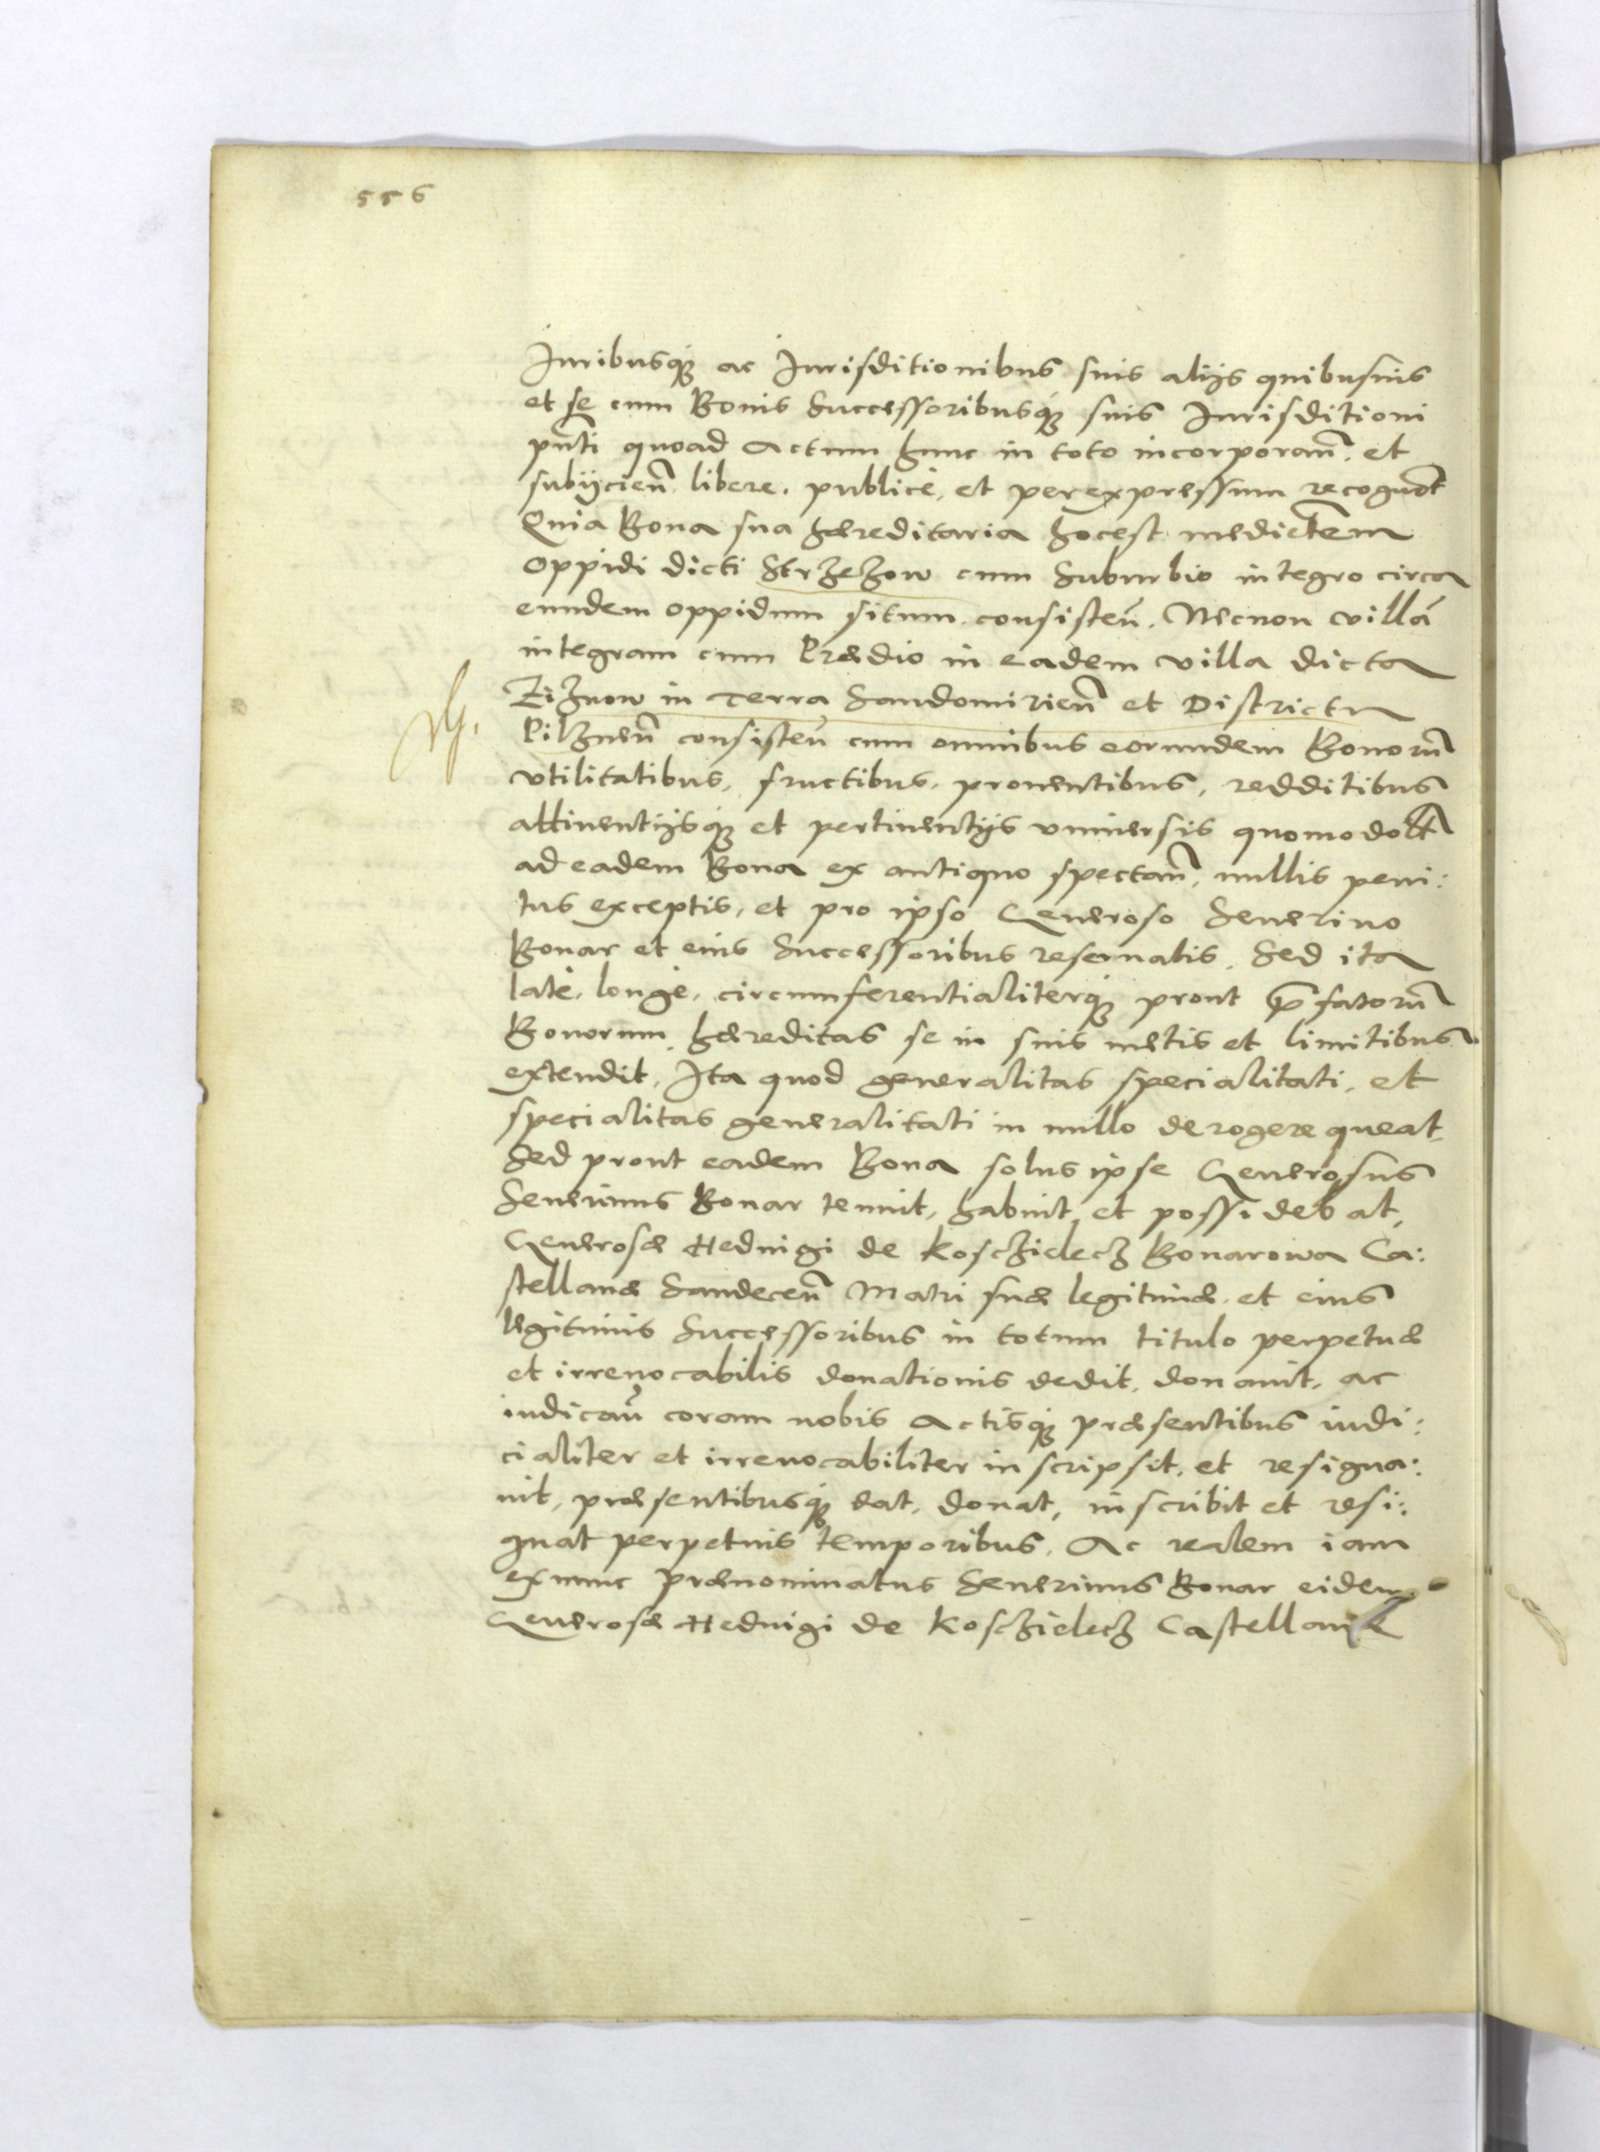 556
Iuribusq; ac Iurisditionibus suis alijs quibusuis
et se cum Bonis Successoribusq; suis Iurisditioni
pñti quoad Actum hunc in toto incorporañ. et
subijcieñ. libere. publicè. et per expressum recognoȓ
Quia Bona sua hæreditaria hocest medietem
oppidi dicti Strzezow cum Suburbio integro circa
eundem oppidum situm consisteñ. Necnon villā
integram cum Prædio in eadem villa dicta
Ziznow in Terra Sandomirieñ et Districtu
Pilzneñ consisteñ cum omnibus eorundem Bonorū
vtilitatibus, fructibus, prouentibus, redditibus
attinentijsq; et pertinentijs vniuersis quomodolt
ad eadem Bona ex antiquo spectañ, nullis peni:
tus exceptis, et pro ipso Generoso Seuerino
Bonar et eius Successoribus reseruatis. Sed ita
latè. longè. circumferentialiterq; prout p̄fatorū
Bonorum hæreditas se in suis metis et limitibus
extendit. Ita quod generalitas specialitati. et
specialitas generalitati in nullo derogere queat.
Sed prout eadem Bona solus ipse Generosus
Seuerinus Bonar tenuit, habuit, et possideb at,
Generosæ Hedwigi de Koschielecz Bonarowa Ca:
stellanæ Sandeceñ Matri suæ legitimæ. et eius
legitimis Successoribus in totum titulo perpetuæ
et irreuocabilis donationis dedit, donauit, ac
iudicañ coram nobis Actisq; præsentibus iudi:
cialiter et irreuocabiliter inscripsit, et resigna:
uit, præsentibusq; dat, donat, inscribit et resi:
gnat perpetuis temporibus. Ac realem iam
exnunc prænominatus Seuerinus Bonar eidem
Generosæ Hedwigi de Koschielecz Castellanæ